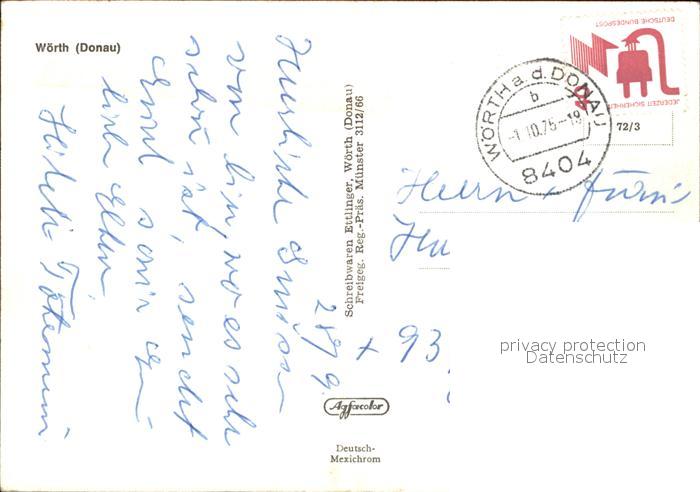 Wörth (Donau)
Herzliche Grüsse
von hier, wo es sehr
schön ist, sendet
Ernst, sowie
liebe Eltern
Schreibwaren Ettlinger, Wörth (Donau)
Freigeg. Reg.-Präs. Münster 3112/66
Agfacolor
Deutsch-
Mexichrom
DEUTSCHE BUNDESPOST
JEDERZEIT SICHERHEIT
WÖRTH a. d. DONAU
b
-1.10.75-19
8404
72/3
Herrn + Fam.
+ 93
privacy protection
Datenschutz